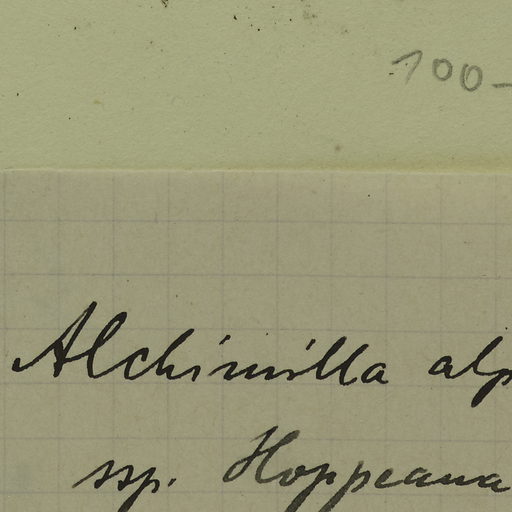 100-
Alchimilla alp
ssp. Hoppeana